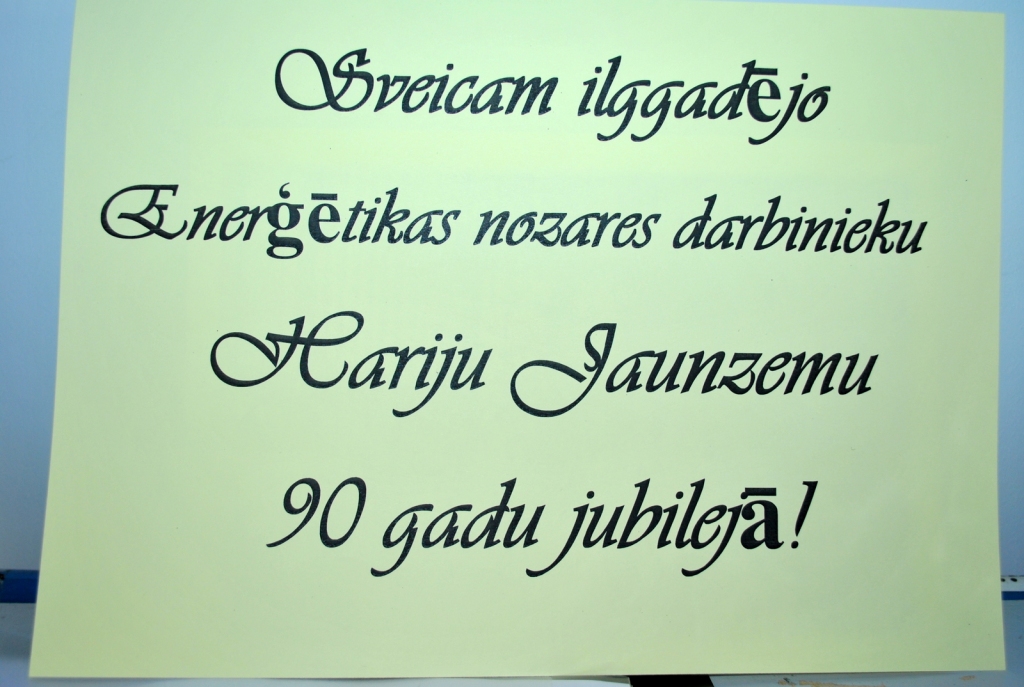 Sveicam ilggadējo
Enerģētikas nozares darbinieku
Hariju Jaunzemu
90 gadu jubilejā!